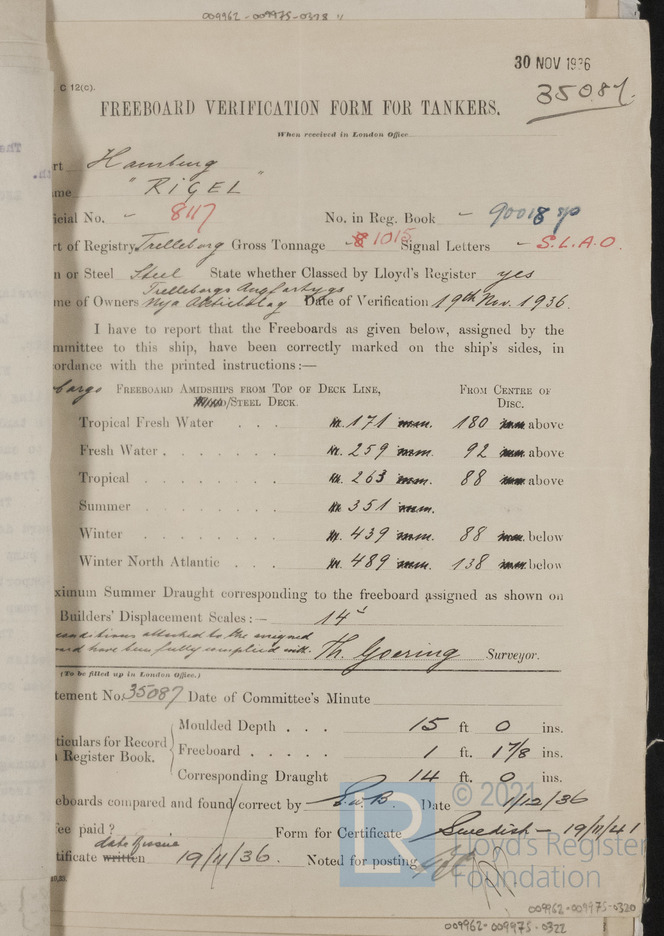 009962-009975-0318
30 NOV 1936
C 12(c).
35087.
FREEBOARD VERIFICATION FORM FOR TANKERS.
When received in London Office
rt Hamburg
me "RIGEL"
icial No. - 8117 No. in Reg. Book - 90018
rt of Registry Trelleborg Gross Tonnage 1015 Signal Letters - S.L.A.O.
n or Steel Steel State whether Classed by Lloyd's Register yes
Trelleborgs Angfartygs
me of Owners Nya Aktiebolag Date of Verification 19th Nov. 1936.
I have to report that the Freeboards as given below, assigned by the
mmittee to this ship, have been correctly marked on the ship's sides, in
ordance with the printed instructions:—
FREEBOARD AMIDSHIPS FROM TOP OF DECK LINE, FROM CENTRE OF
/STEEL DECK. DISC.
Tropical Fresh Water . . . 171 mm. 180 mm above
Fresh Water . . . . . 259 mm. 92 mm above
Tropical . . . . . . . 263 mm. 88 mm above
Summer . . . . . . . 351 mm.
Winter . . . . . . . 439 mm. 88 mm below
Winter North Atlantic . . . 489 mm. 138 mm below
ximum Summer Draught corresponding to the freeboard assigned as shown on
Builders' Displacement Scales:— 14'
conditions attached to the assigned
rd have been fully complied with. Th. Goering Surveyor.
(To be filled up in London Office.)
tement No. 35087 Date of Committee's Minute
Moulded Depth . . . 15 ft 0 ins.
ticulars for Record
Register Book.
Freeboard . . . . . 1 ft. 1 7/8 ins.
Corresponding Draught 14 ft. 0 ins.
eboards compared and found correct by S.W.B. Date 1/12/36
© 2021
ee paid? Form for Certificate Swedish - 19/11/41
date of issue
tificate written 19/11/36. Noted for posting
LR
Lloyd's Register
Foundation
009962-009975-0320
009962-009975-0322